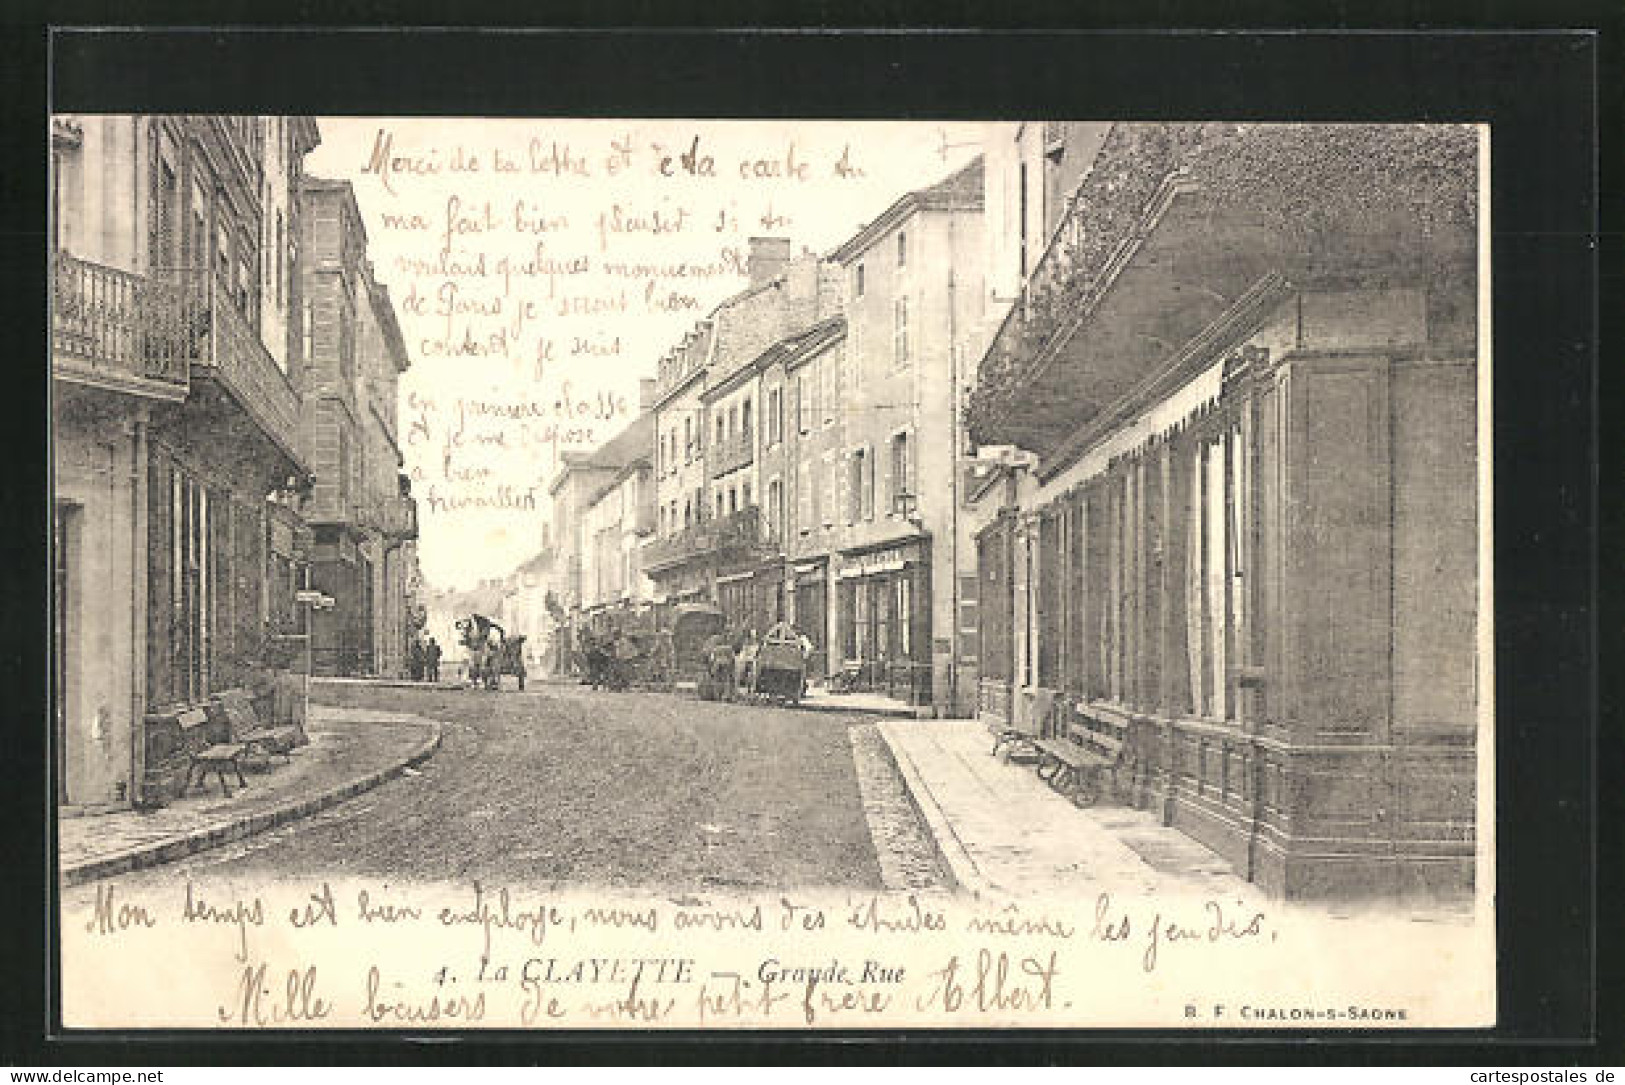 Merci de ta lettre et de ta carte tu
ma fait bien plaisir si tu
voulais quelques monuements
de Paris je serais bien
content, je suis
en première classe
et je me dispose
a bien
travailler
Mon temps est bien employe, nous avons des études même les jeudis.
4. La CLAYETTE — Grande Rue
Mille baisers de votre petit frère Albert.
B. F. CHALON-S-SAONE
oldthing.de
cartespostales de